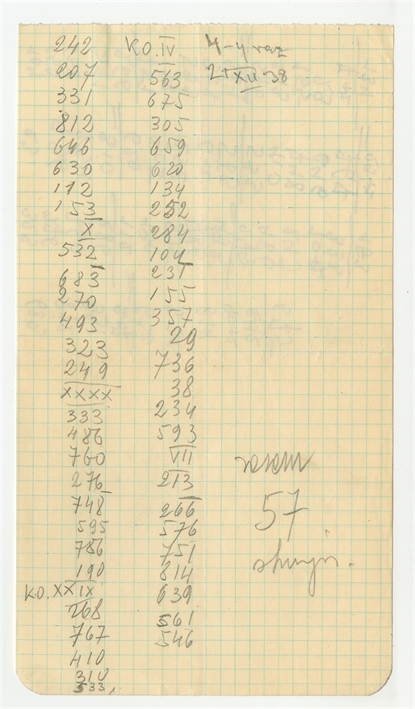 242
207
331
812
646
630
112
153
X
532
683
270
493
323
249
XXXX
333
486
760
276
748
595
786
190
KO. XXIX
268
767
410
310
533,
KO. IV
563
675
305
659
620
134
252
284
104
231
155
357
29
736
38
234
593
VII
213
266
576
751
814
639
561
546
4-y raz
21 XII 38
razam
57